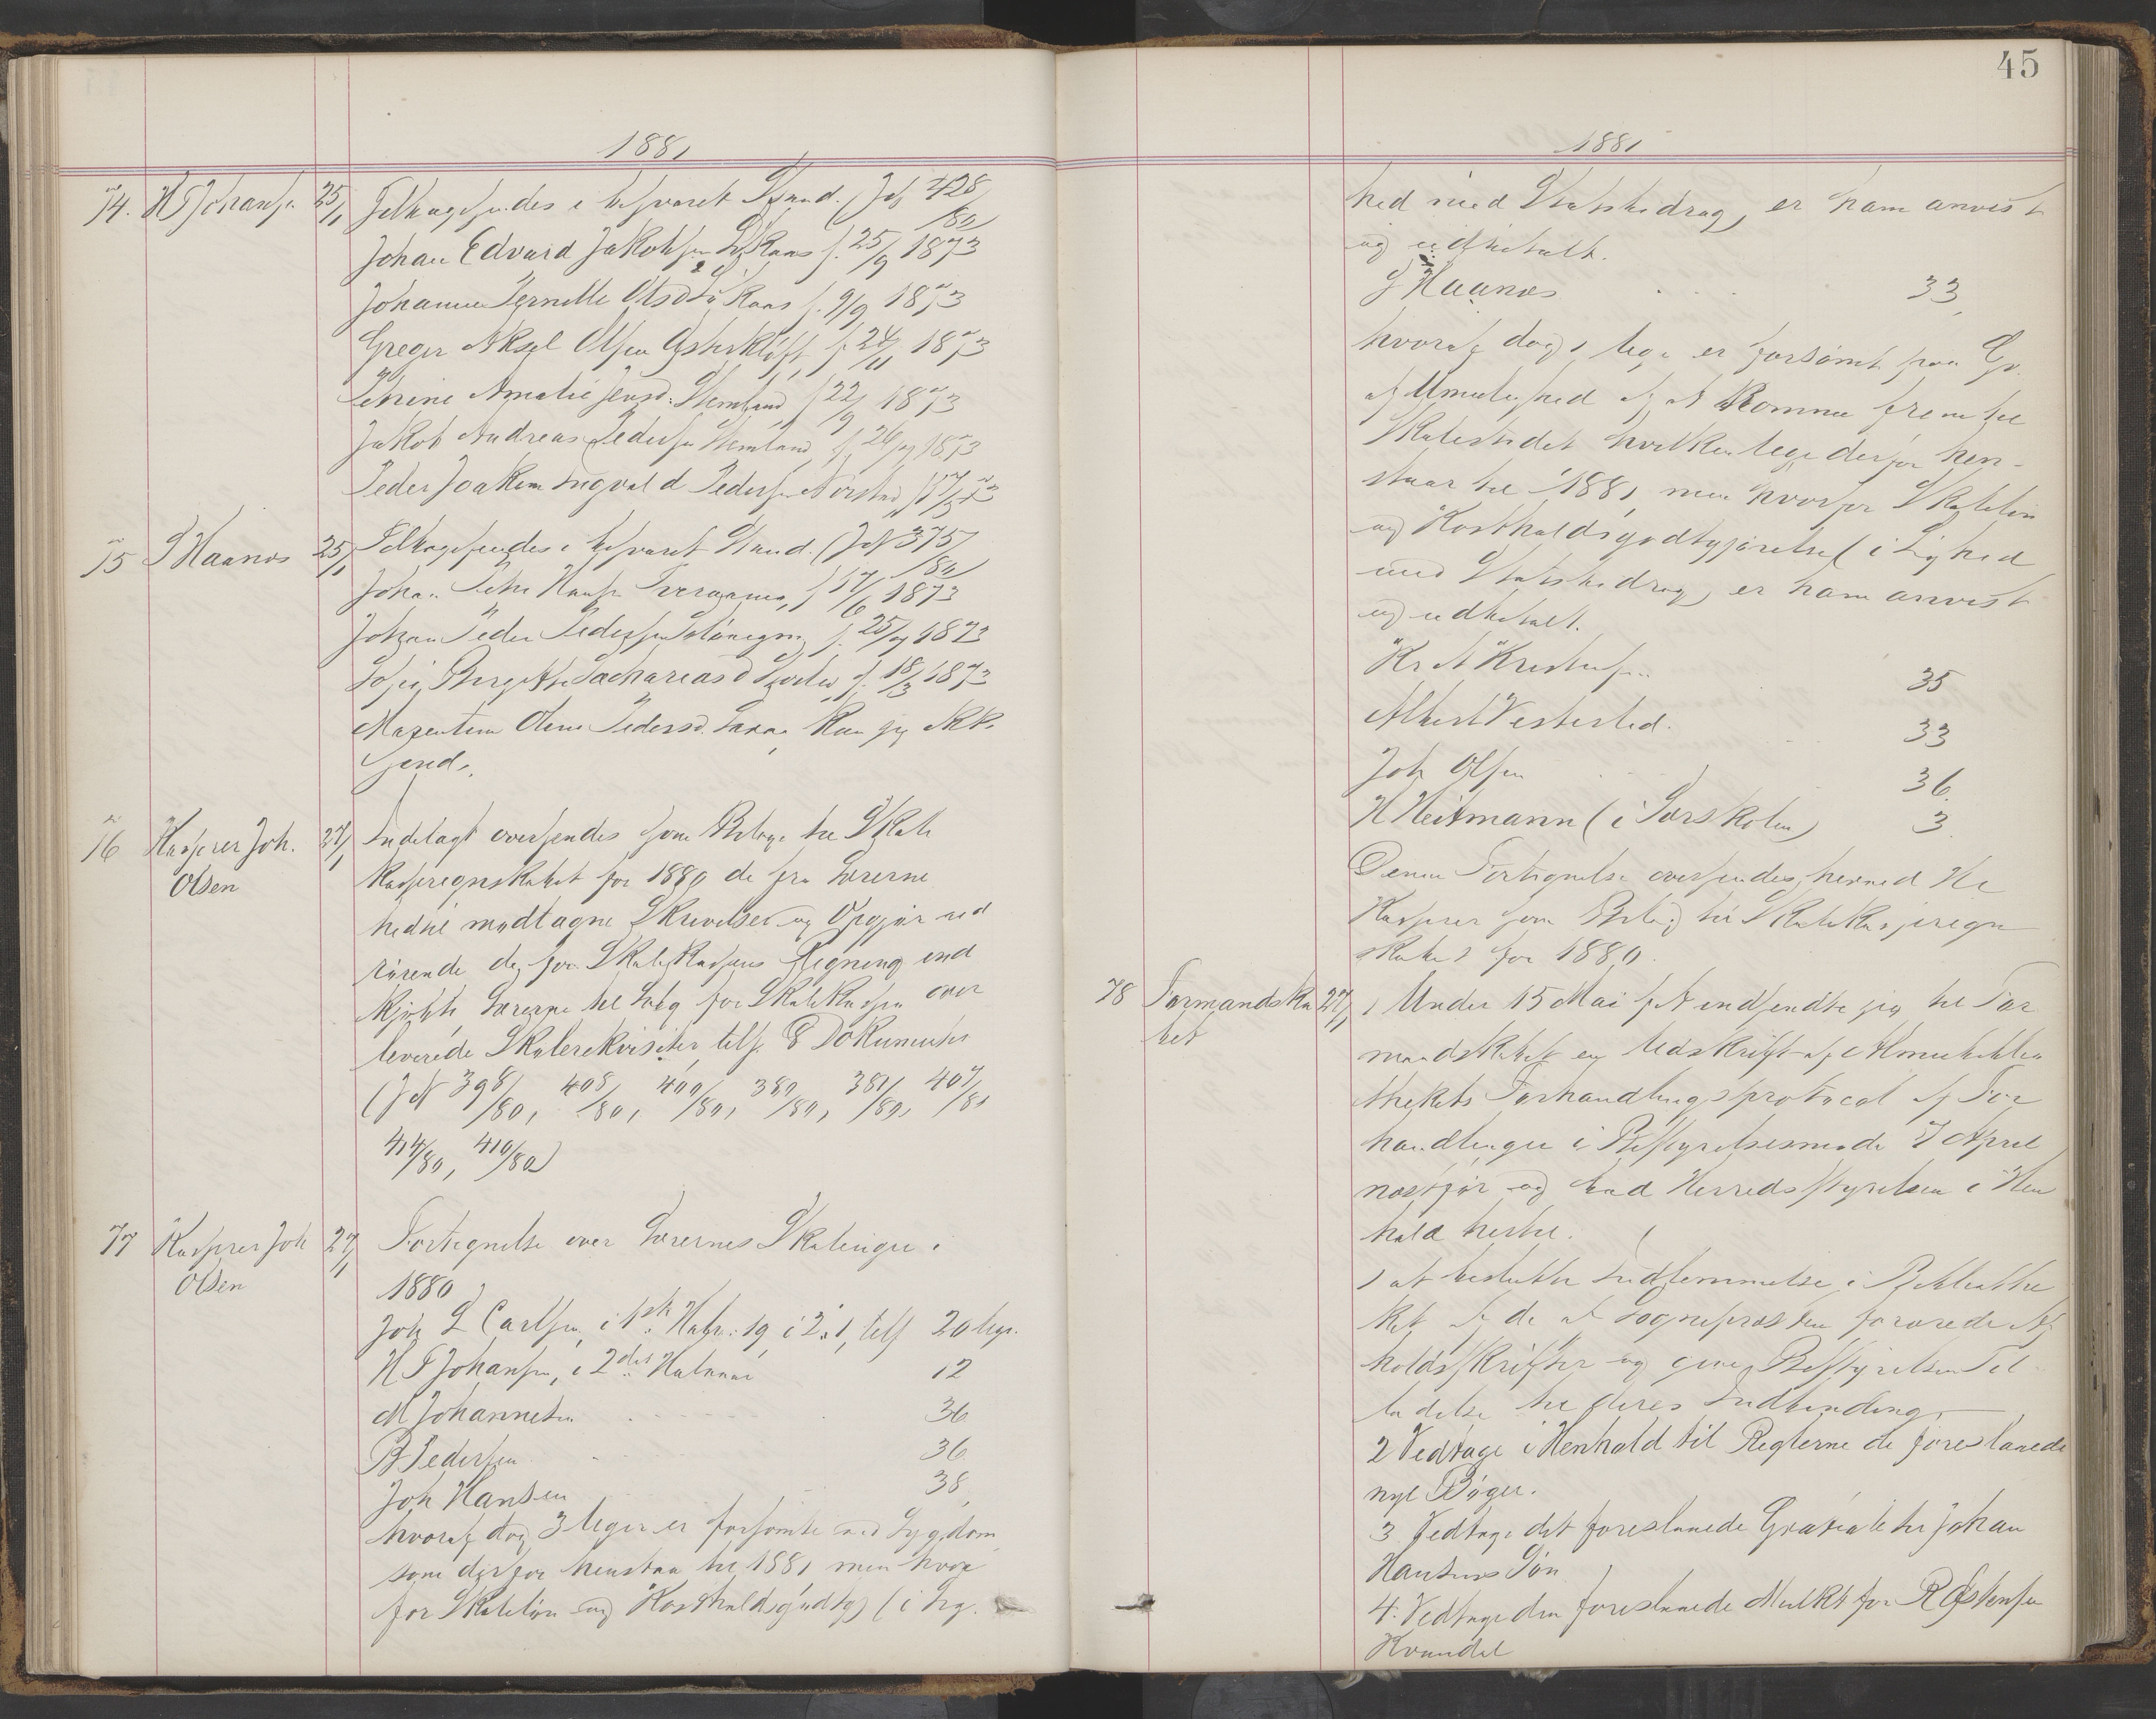 1881
74. H J Johansen 25/1 Tilbagesendes i besvaret Stand. (JN 428/80)
Johan Edvard Jakobsen f. 25/9 1873
Johanna Pernille Olsd f. 9/9 1873
Greger Aksel Olsen f 24/11 1873
Petrine Amalie Jensd. Stemland f 22/9 1873
Jakob Andreas Pedersen Stemland f. 1873
Peder Joakim Ingvald Pedersen
75 S Haanes 25/1 Tilbagesendes i besvaret Stand. (JN 375/80)
Johan Peter Hansen f 17/6 1873
Johan Peder Pedersen f. 25/ 1873
Sofie Birgitte Sachariasd f. 18/3 1873
Oline Pedersd. kan jeg ikke
finde.
76 Kasserer Joh. 27/1 Indelagt oversendes som Bilage til Skole
Olsen kasseregnskabet for 1880 de fra Lærerne
hertil modtagne Skrivelser og Opgjør ved
rørende de for Skolekassens Regning ind
kjøbte Lærerne til Salg for Skolekassen over
leverede Skolerekvisiter, tils. 8 Dokumenter
(JN 398/80, 408/80, 400/80, 380/80, 381/80, 407/80
414/80, 410/80)
77 Kasserer Joh 27/1 Fortegnelse over Lærernes Skoleuger i
Olsen 1880
Joh L Carlsen, i 1ste Halv: 19, i 2: 1, tils 20 Uger.
H J Johansen, i 2det Halvaar 12
M Johannesen 36
B Pedersen 36
Joh Hansen 38,
hvoraf dog 3 Uger er forsømte ved Sygdom
som derfor henstaa til 1881 men hvor
for Skoleløn og Kostholdsgodtg) (i Lig-
45
1881
hed med Statsbidrag, er ham anvist
og udbetalt.
S Haanes 33,
hvoraf dog 1 Uge er forsømt paa Gr.
af Umulighed af at komme frem til
Skolestedet hvilken Uge derfor hen-
staar til 1881, men hvorfor Skoleløn
og Kostholdsgodtgjørelse (i Lighed
med Statsbidrag) er ham anvist
og udbetalt.
Kr A Kristensen 35
Albert Vestersted. 33
Joh Olsen 36.
H Heitmann (i Forskolen) 3.
Denne Fortegnelse oversendes herved Hr
Kasserer som Bilag til Skolekasseregn
skabet for 1880.
78 Formandska 27/1 1 Under 15 Mai f A indsendte jeg til For
bet
mandskabet en Udskrift af Almuebiblio
thekets Forhandlingsprotocol af For
handlinger i Bestyrelsesmøde 7 April
næstfør og bad Herredsstyrelsen i Hen
hold hertil.
1 at beslutte Indlemmelse i Bibliothe
ket af de af Sognepresten forærede Af
holdsskrifter og give Bestyrelsen Til
ladelse til deres Indbinding.
2 Vedtage i Henhold til Reglerne de foreslaaede
nye Bøger.
3 Vedtage det foreslaaede Gratiale til Johan
Hansens Søn
4. Vedtage den foreslaaede Mulkt for R Østensen
Kvandal